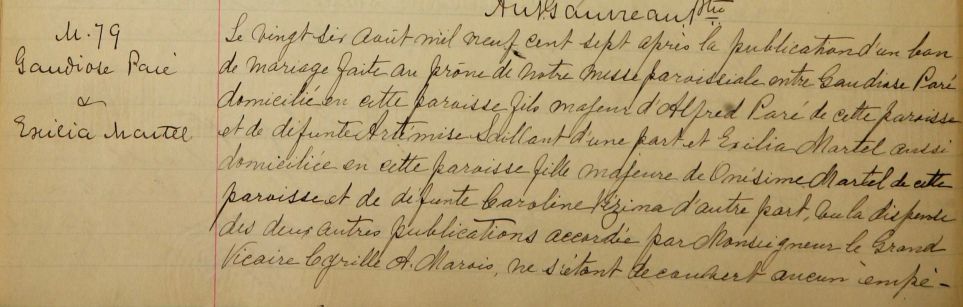 Ant Gauvreau Ptre
M. 79
Gaudiose Paré
&
Exilia Martel
Le vingt six août mil neuf cent sept après la publication d'un ban
de mariage faite au prône de notre messe paroissiale entre Gaudiose Paré
domicilié en cette paroisse fils majeur d'Alfred Paré de cette paroisse
et de défunte Artémise Saillant d'une part et Exilia Martel aussi
domiciliée en cette paroisse fille majeure de Onésime Martel de cette
paroisse et de défunte Caroline Vézina d'autre part, vu la dispense
des deux autres publications accordée par Monseigneur le Grand
Vicaire Cyrille A. Marois, ne s'étant découvert aucun empê-